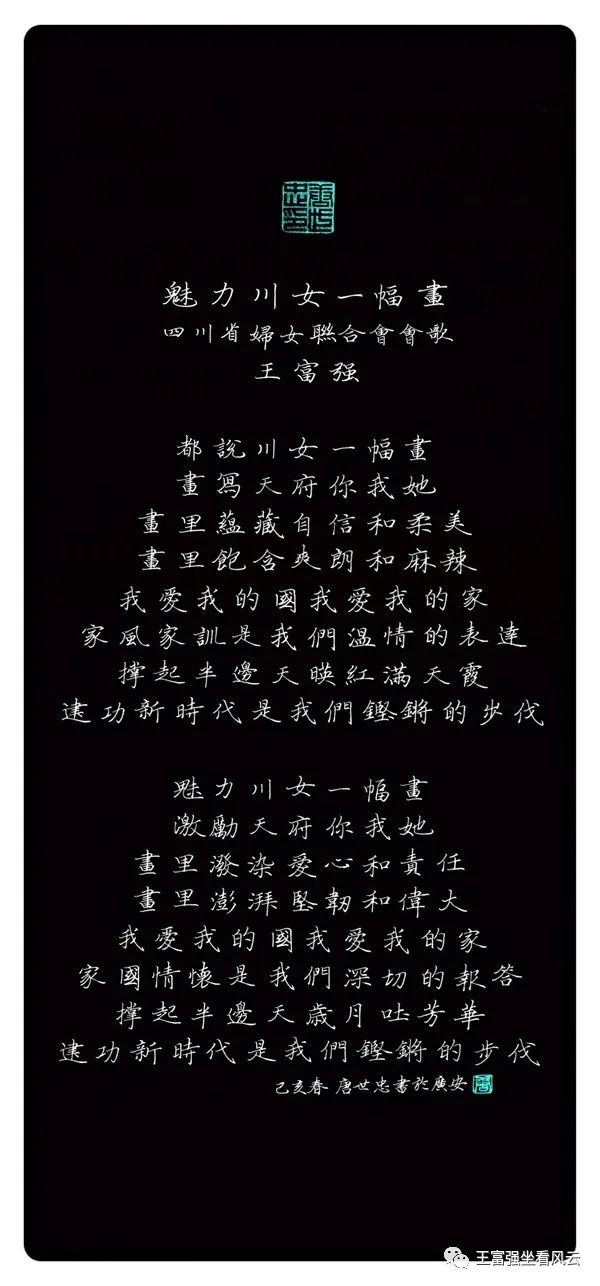 唐世忠印
魅力川女一幅畫
四川省婦女聯合會會歌
王富强
都說川女一幅畫
畫寫天府你我她
畫里蘊藏自信和柔美
畫里飽含爽朗和麻辣
我愛我的國我愛我的家
家風家訓是我們溫情的表達
撐起半邊天暎紅滿天霞
建功新時代是我們鏗鏘的步伐
魅力川女一幅畫
激勵天府你我她
畫里潑染愛心和責任
畫里澎湃堅韌和偉大
我愛我的國我愛我的家
家國情懷是我們深切的報答
撐起半邊天歲月吐芳華
建功新時代是我們鏗鏘的步伐
己亥春 唐世忠書於廣安 唐
王富强坐看风云